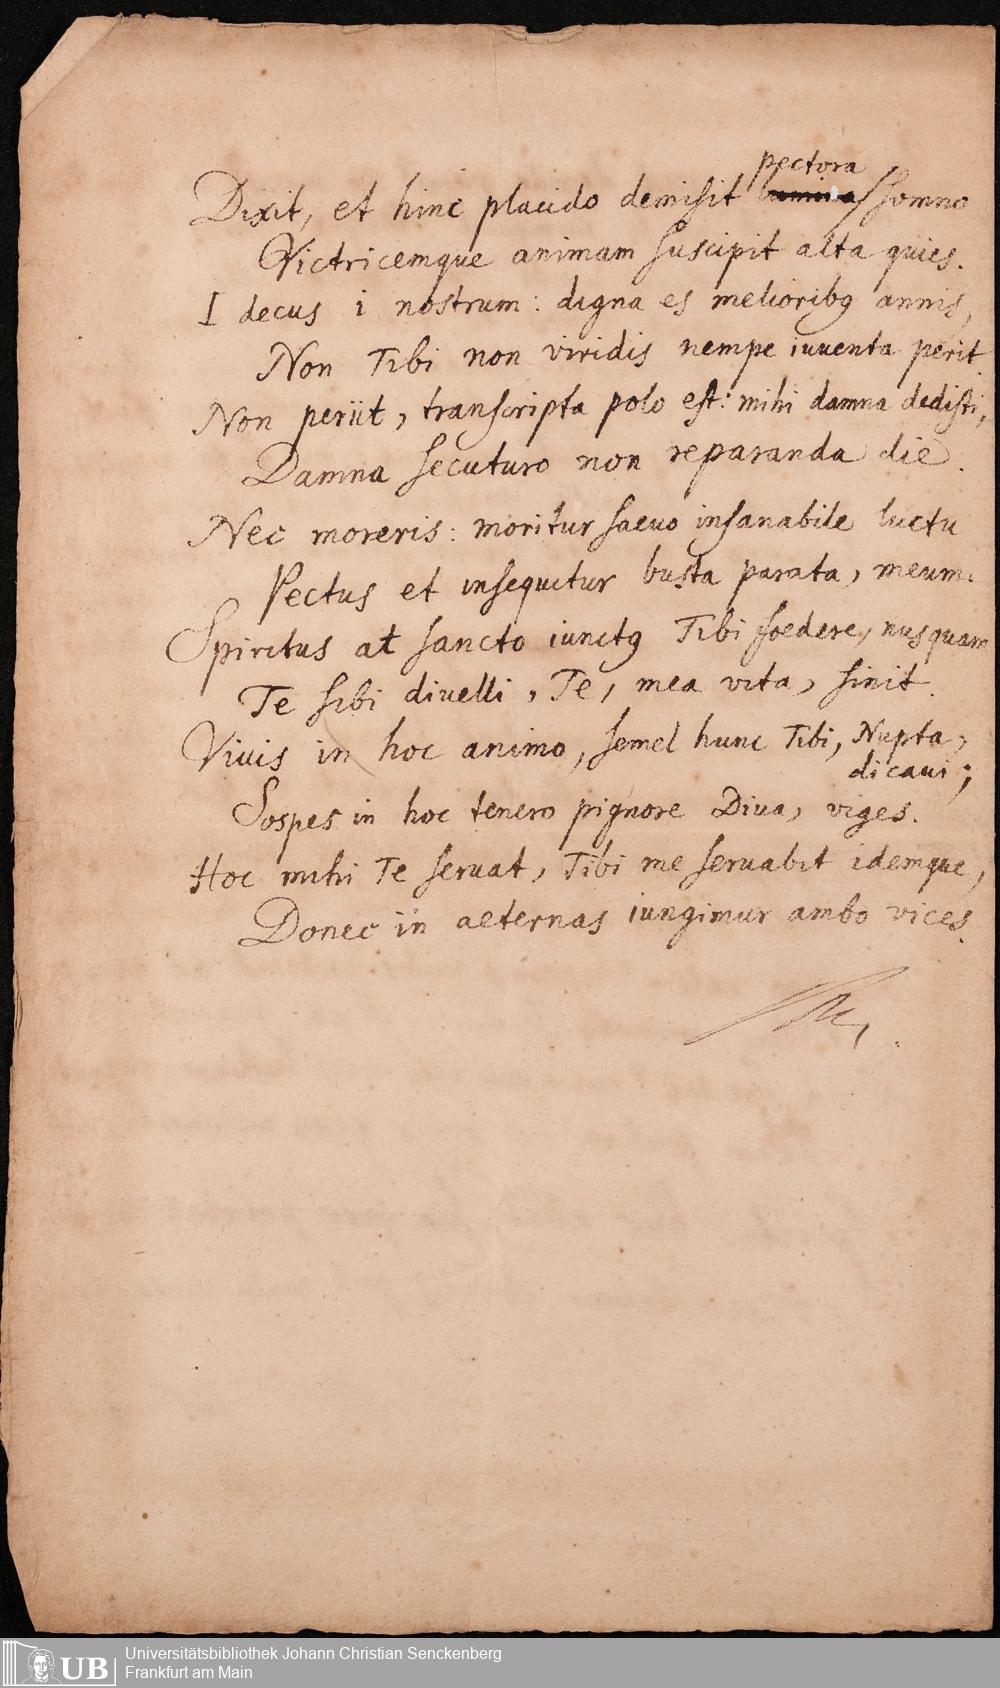 pectora
Dixit, et hinc placido demisit lumina somno
Victricemque animam suscipit alta quies.
I decus i nostrum: digna es melioribꝯ annis,
Non Tibi non viridis nempe iuuenta perit.
Non periit, transcripta polo est: mihi damna dedisti,
Damna secuturo non reparanda die.
Nec moreris: moritur saeuo insanabile luctu
Pectus et insequitur busta parata, meum.
Spiritus at sancto iunctꝯ Tibi foedere, nusquam
Te sibi diuelli, Te, mea vita, sinit.
Viuis in hoc animo, semel hunc Tibi, Nupta,
dicaui;
Sospes in hoc tenero pignore Diua, viges.
Hoc mihi Te seruat, Tibi me seruabit idemque,
Donec in aeternas iungimur ambo vices.
UB
Universitätsbibliothek Johann Christian Senckenberg
Frankfurt am Main